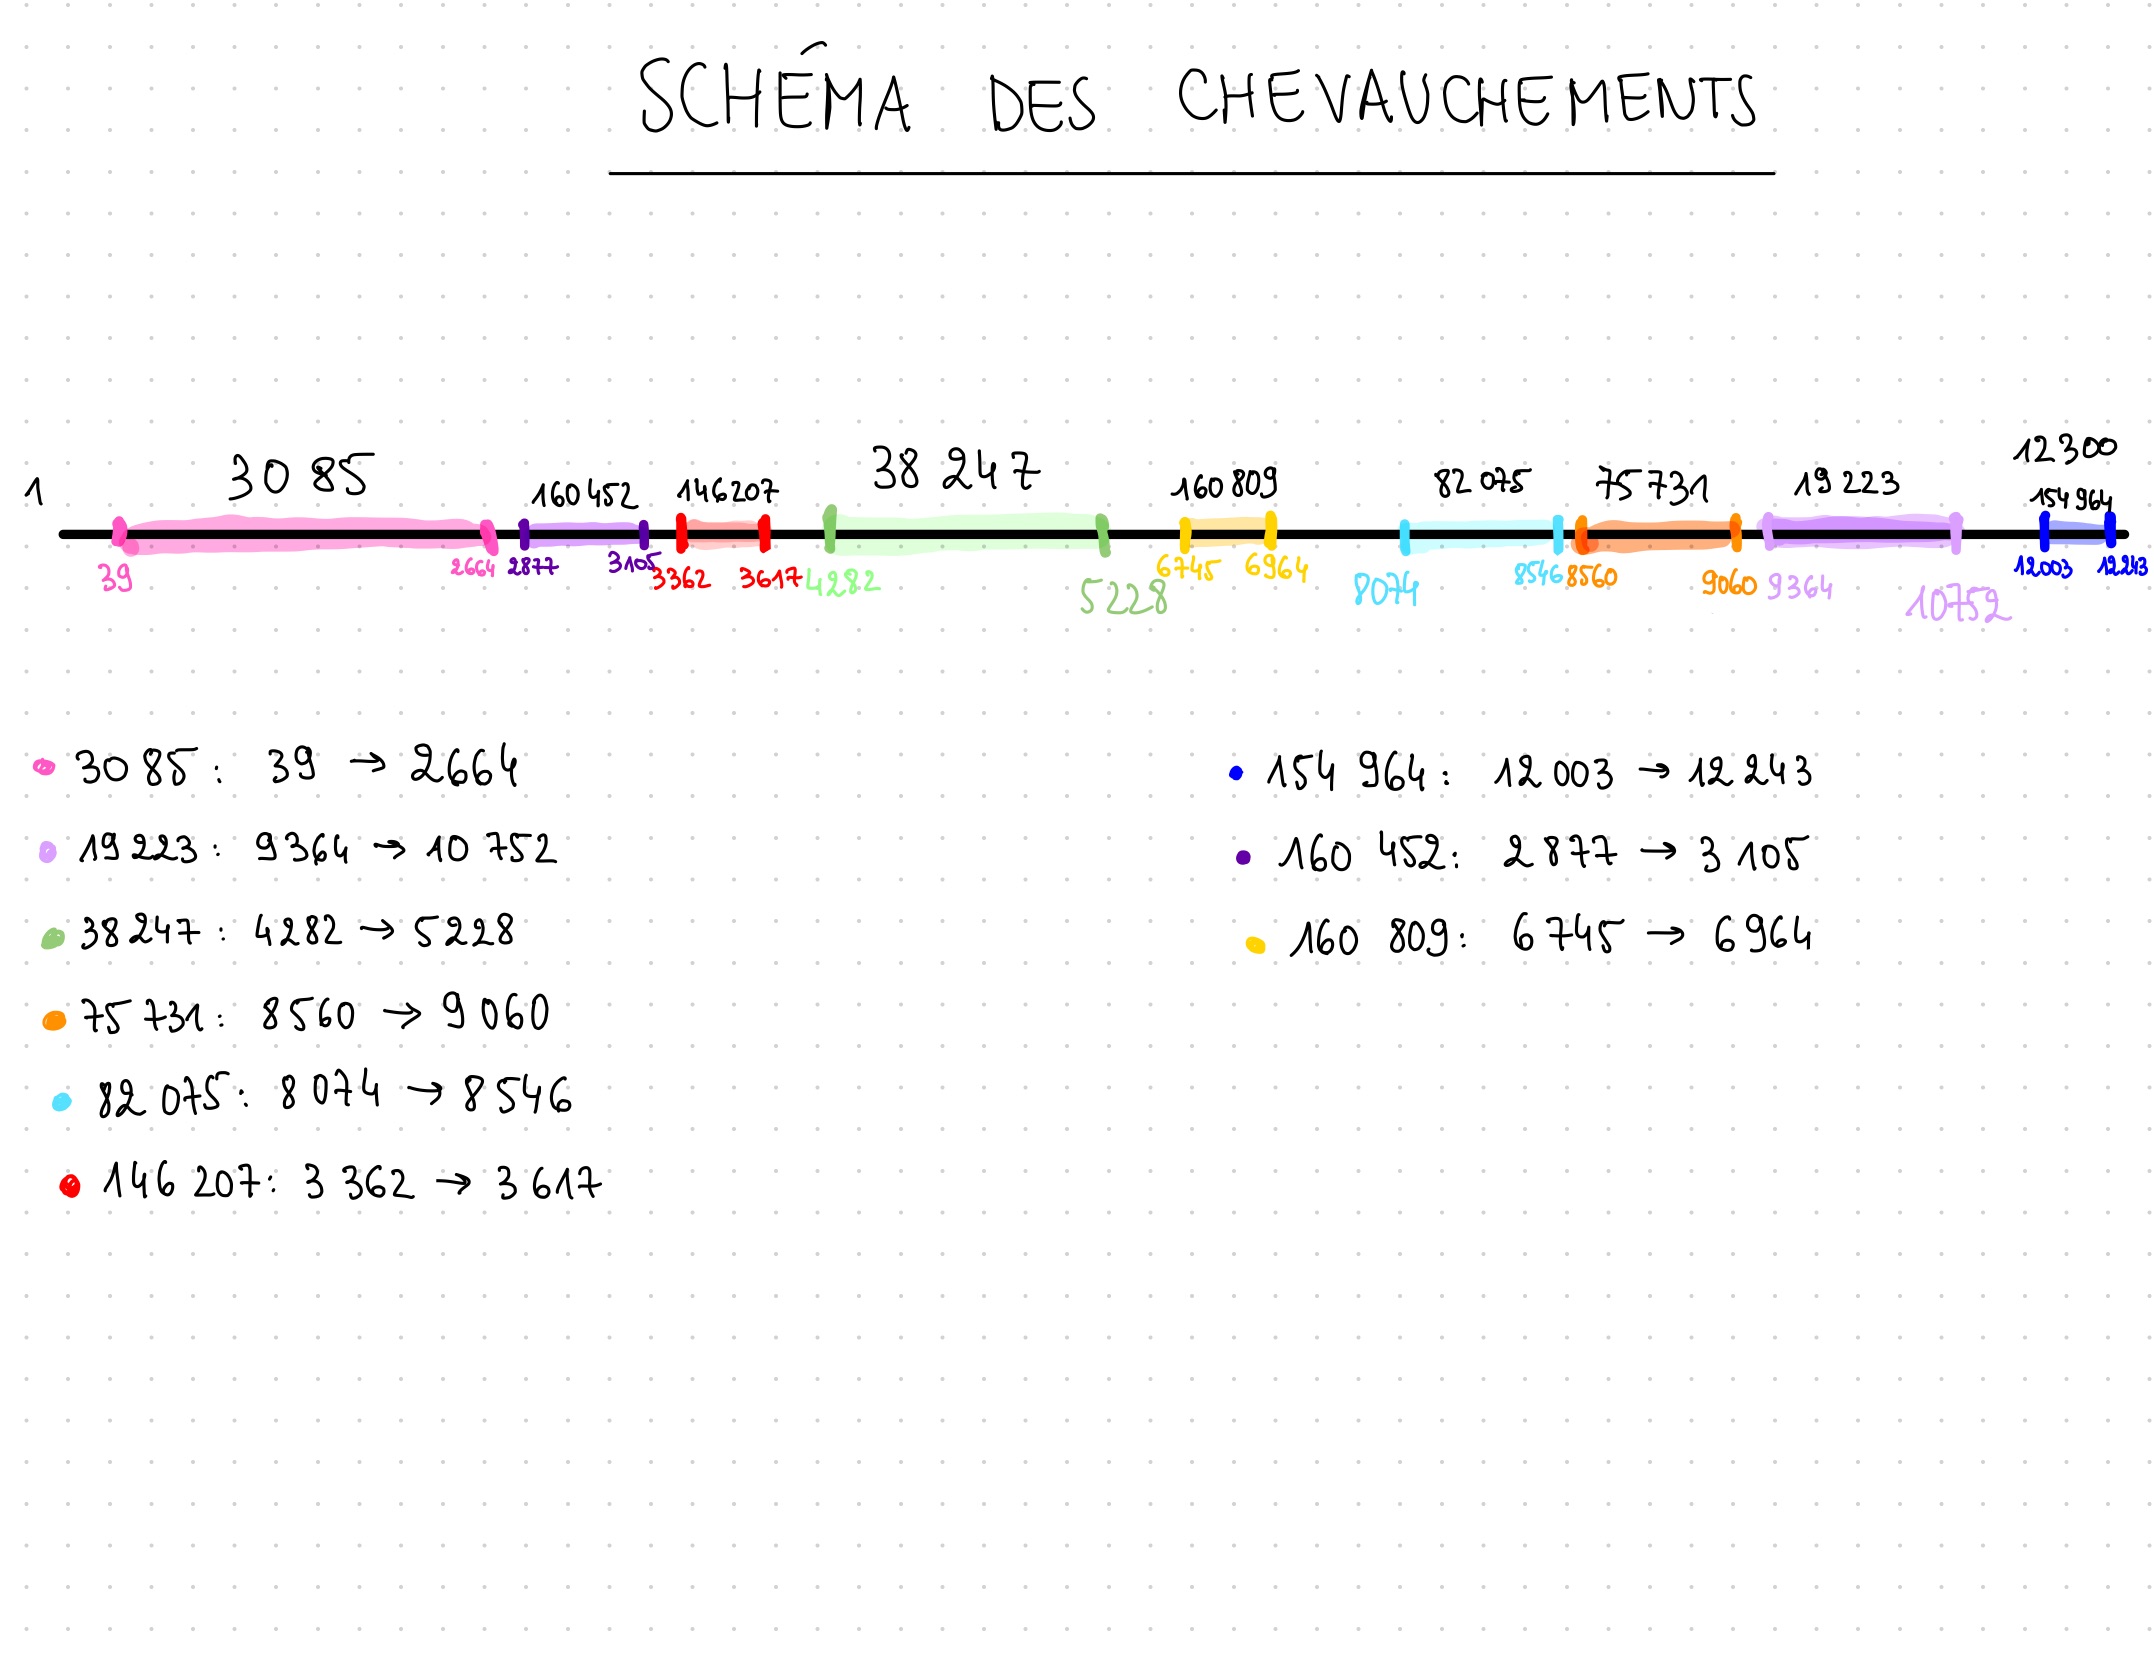 SCHÉMA DES CHEVAUCHEMENTS
12300
1 3085 160452 146207 38247 160809 82075 75731 19223 154964
39 2664 2877 3105 3362 3617 4282 5228 6745 6964 8074 8546 8560 9060 9364 10752 12003 12243
3085 : 39 → 2664
19223 : 9364 → 10 752
38247 : 4282 → 5228
75731 : 8560 → 9060
82 075 : 8074 → 8546
146 207 : 3362 → 3617
154 964 : 12 003 → 12 243
160 452 : 2877 → 3105
160 809 : 6745 → 6964